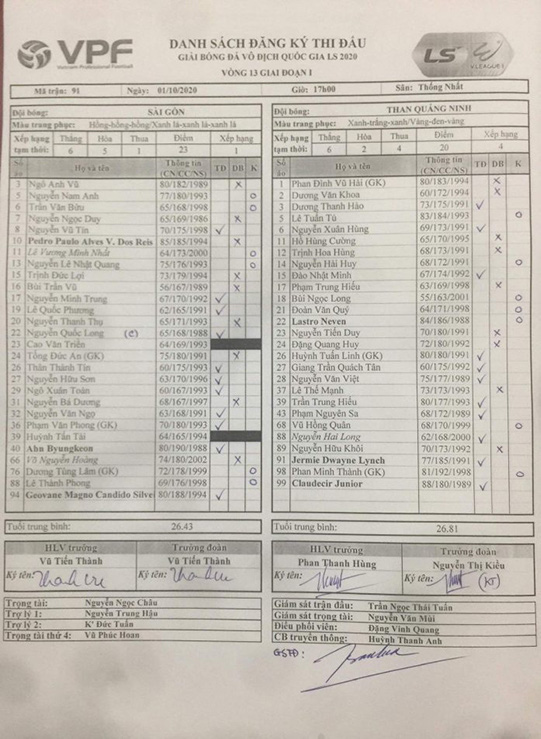 VPF
Vietnam Professional Football
DANH SÁCH ĐĂNG KÝ THI ĐẤU
GIẢI BÓNG ĐÁ VÔ ĐỊCH QUỐC GIA LS 2020
VÒNG 13 GIAI ĐOẠN I
LS
V.LEAGUE 1
Mã trận: 91 Ngày: 01/10/2020 Giờ: 17h00 Sân: Thống Nhất
Đội bóng: SÀI GÒN
Màu trang phục: Hồng-hồng-hồng/Xanh lá-xanh lá-xanh lá
Xếp hạng tạm thời: Thắng Hòa Thua Điểm Xếp hạng
6 5 1 23 1
Số áo Họ và tên Thông tin (CN/CC/NS) TĐ DB K
3 Ngô Anh Vũ 80/182/1989 x
5 Nguyễn Nam Anh 77/180/1993 o
6 Trần Văn Bửu 65/168/1998 o
7 Nguyễn Ngọc Duy 65/169/1986 x
8 Nguyễn Vũ Tín 70/175/1998 ✓
10 Pedro Paulo Alves V. Dos Reis 85/185/1994 x
11 Lê Vương Minh Nhất 64/173/2000 o
13 Nguyễn Lê Nhật Quang 75/176/1993 o
15 Trịnh Đức Lợi 73/179/1994 x
16 Bùi Trần Vũ 56/167/1989 x
17 Nguyễn Minh Trung 67/170/1992 ✓
19 Lê Quốc Phương 62/165/1991 ✓
20 Nguyễn Thanh Thụ 65/171/1993 x
22 Nguyễn Quốc Long (c) 65/168/1988 ✓
23 Cao Văn Triền 64/169/1993
24 Tống Đức An (GK) 75/180/1991 x
26 Thân Thành Tín 60/175/1993 ✓
27 Nguyễn Hữu Sơn 63/170/1996 ✓
29 Ngô Xuân Toàn 60/167/1993 ✓
31 Nguyễn Bá Dương 68/167/1997 x
32 Nguyễn Văn Ngọ 63/168/1991 ✓
36 Phạm Văn Phong (GK) 70/180/1993 ✓
39 Huỳnh Tấn Tài 64/165/1994
40 Ahn Byungkeon 80/190/1988 ✓
66 Võ Nguyên Hoàng 74/180/2002 x
76 Dương Tùng Lâm (GK) 72/178/1999 o
88 Lê Thành Phong 69/176/1998 o
94 Geovane Magno Candido Silve 80/188/1994 ✓
Tuổi trung bình: 26.43
HLV trưởng Trưởng đoàn
Vũ Tiến Thành Vũ Tiến Thành
Ký tên: Ký tên:
Trọng tài: Nguyễn Ngọc Châu
Trợ lý 1: Nguyễn Trung Hậu
Trợ lý 2: K' Đức Tuấn
Trọng tài thứ 4: Vũ Phúc Hoan
Đội bóng: THAN QUẢNG NINH
Màu trang phục: Xanh-trắng-xanh/Vàng-đen-vàng
Xếp hạng tạm thời: Thắng Hòa Thua Điểm Xếp hạng
6 2 4 20 4
Số áo Họ và tên Thông tin (CN/CC/NS) TĐ DB K
1 Phan Đình Vũ Hải (GK) 80/183/1994 x
2 Dương Văn Khoa 60/172/1994 x
3 Dương Thanh Hào 73/175/1991 ✓
5 Lê Tuấn Tú 83/184/1993 o
6 Nguyễn Xuân Hùng 69/173/1991 ✓
11 Hồ Hùng Cường 65/170/1995 x
12 Trịnh Hoa Hùng 68/173/1991 x
14 Nguyễn Hải Huy 68/172/1991 o
15 Đào Nhật Minh 67/174/1992 ✓
17 Phạm Trung Hiếu 63/169/1998 x
18 Bùi Ngọc Long 55/163/2001 o
21 Đoàn Văn Quý 64/171/1998 o
22 Lastro Neven 84/186/1988 o
23 Nguyễn Tiến Duy 70/180/1991 x
24 Đặng Quang Huy 72/180/1992 x
26 Huỳnh Tuấn Linh (GK) 80/180/1991 ✓
27 Giang Trần Quách Tân 60/171/1992 ✓
28 Nguyễn Văn Việt 75/177/1989 ✓
37 Lê Thế Mạnh 73/173/1993 x
39 Trần Trung Hiếu 80/177/1993 ✓
43 Phạm Nguyên Sa 68/172/1989 ✓
68 Vũ Hồng Quân 68/170/1999 o
88 Nguyễn Hai Long 62/168/2000 ✓
89 Nguyễn Hữu Khôi 70/173/1992 x
91 Jermie Dwayne Lynch 77/185/1991 ✓
98 Phan Minh Thành (GK) 81/192/1998 o
99 Claudecir Junior 88/180/1989 ✓
Tuổi trung bình: 26.81
HLV trưởng Trưởng đoàn
Phan Thanh Hùng Nguyễn Thị Kiều
Ký tên: Ký tên: (KT)
Giám sát trận đấu: Trần Ngọc Thái Tuấn
Giám sát trọng tài: Nguyễn Văn Mùi
Điều phối viên: Đặng Vinh Quang
CB truyền thông: Huỳnh Thanh Anh
GSTĐ: